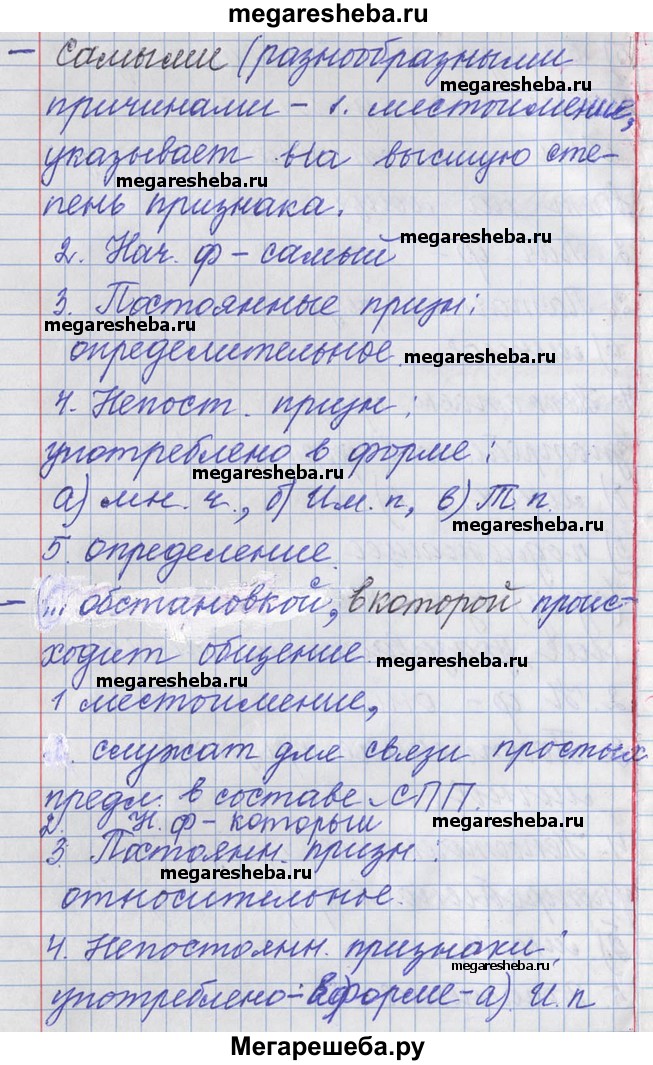 megaresheba.ru
– самыми (разнообразными
megaresheba.ru
причинами – 1. местоимение,
указывает на высшую сте-
megaresheba.ru
пень признака.
megaresheba.ru
2. Нач. ф – самый
3. Постоянные призн:
megaresheba.ru
определительное.
megaresheba.ru
4. Непост. призн:
употреблено в форме:
megaresheba.ru
а) мн. ч., б) Им. п, в) Т. п.
megaresheba.ru
5. определение.
megaresheba.ru
– (... обстановкой, в которой проис-
ходит общение
megaresheba.ru
megaresheba.ru
1 местоимение,
служат для связи простых
предл. в составе СПП.
2. Н. ф – который
megaresheba.ru
3. Постоянн. призн:
megaresheba.ru
относительное.
4. Непостоянн. признаки:
megaresheba.ru
употреблено – в форме – а). И. п
megaresheba.ru
Мегарешеба.ру